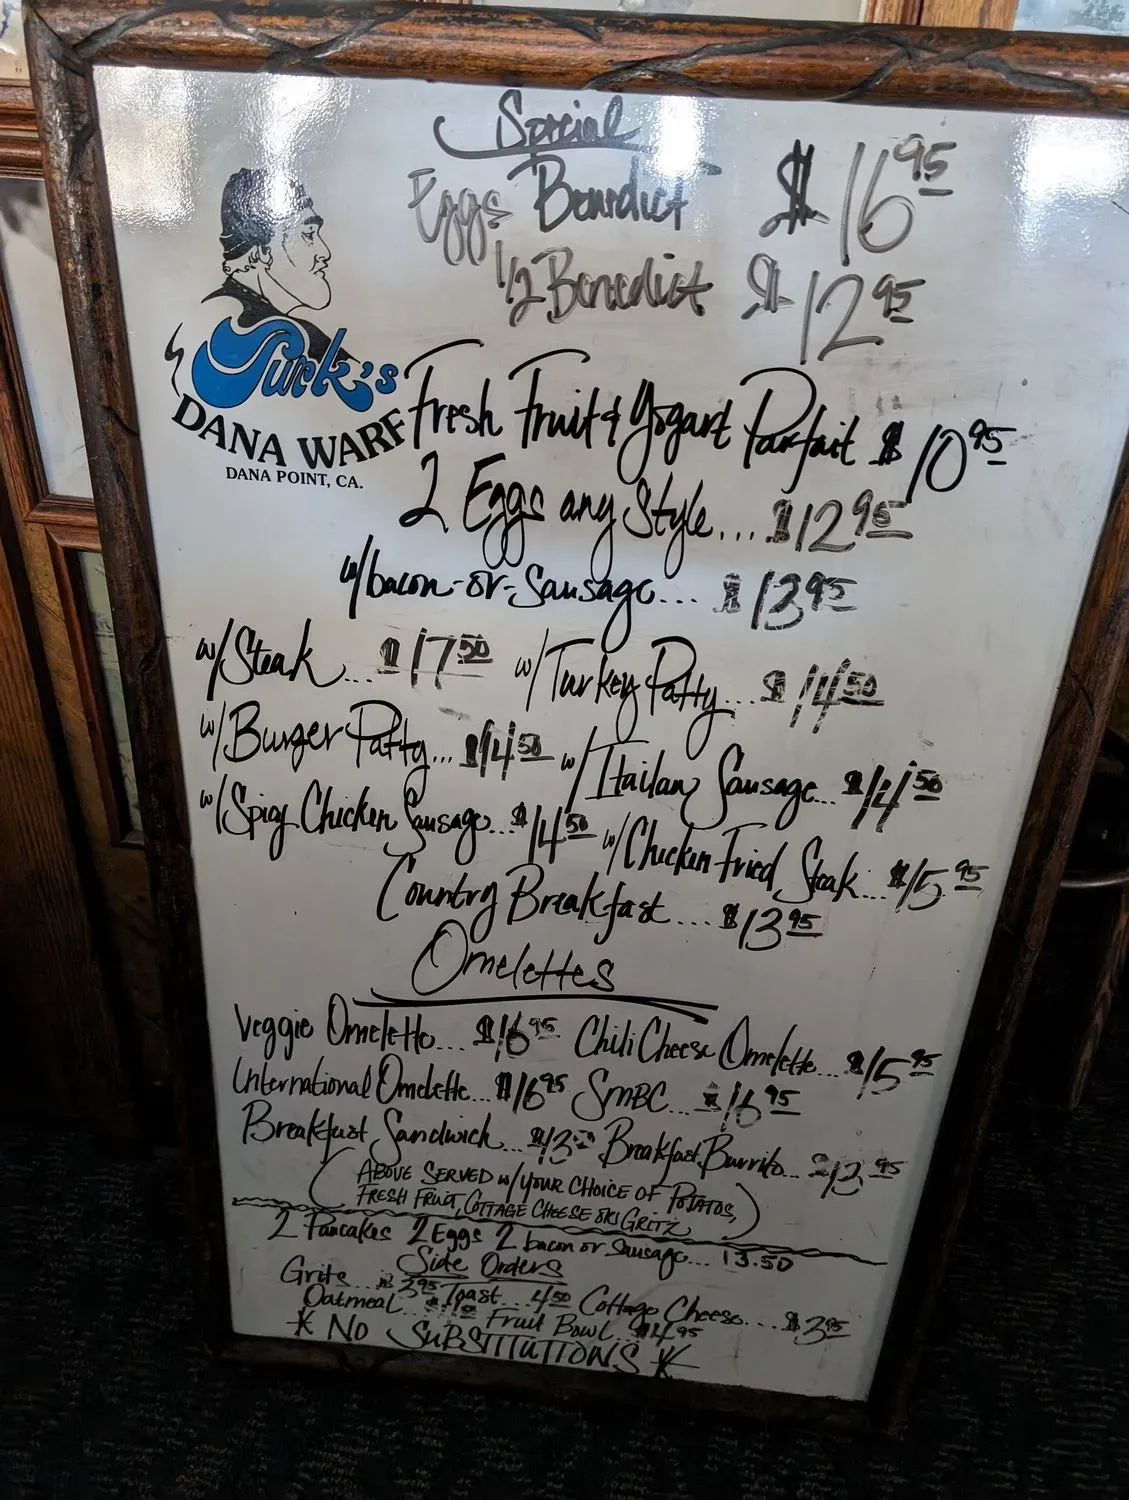 Special
Eggs Benedict $16.95
1/2 Benedict $12.95
Turk's
DANA WARF
DANA POINT, CA.
Fresh Fruit & Yogart Parfait $10.95
2 Eggs any Style... $12.95
w/bacon-or-Sausage... $13.95
w/Steak... $17.50 w/Turkey Patty... $14.50
w/Burger Patty... $14.50 w/Itailan Sausage... $14.50
w/Spicy Chicken Sausage... $14.50 w/Chicken Fried Steak... $15.95
Country Breakfast... $13.95
Omelettes
Veggie Omelette... $16.95 Chili Cheese Omelette... $15.95
International Omelette... $16.95 SMBC... $16.95
Breakfast Sandwich... $13. Breakfast Burrito... $13.95
(ABOVE SERVED w/YOUR CHOICE OF POTATOS,
FRESH FRUIT, COTTAGE CHEESE OR GRITZ)
2 Pancakes 2 Eggs 2 bacon or Sausage... 13.50
Side Orders
Grits... $3.95 Toast... 4.50 Cottage Cheese... $3.95
Oatmeal... Fruit Bowl... $4.95
* NO SUBSTITUTIONS *